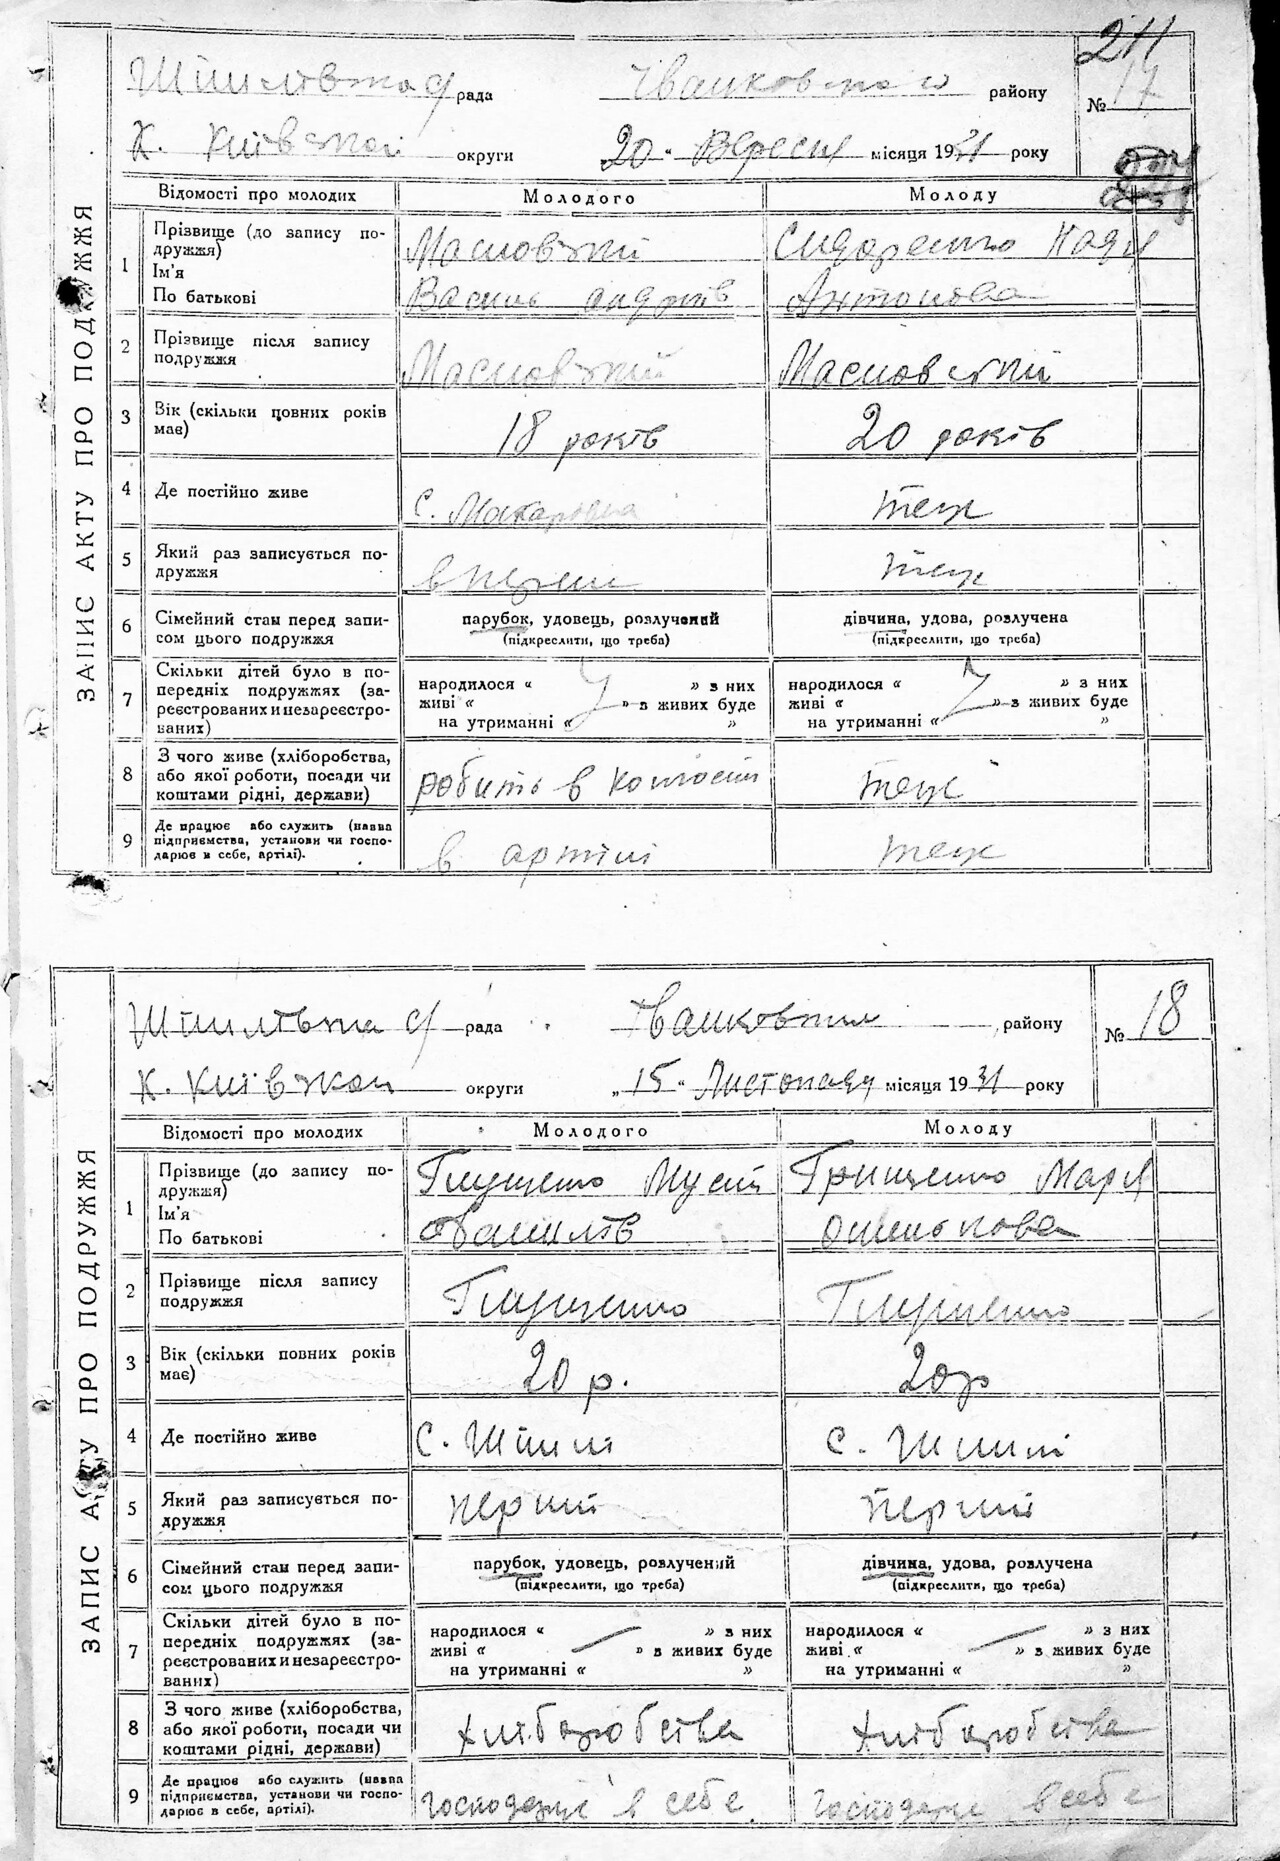 211
ЗАПИС АКТУ ПРО ПОДРУЖЖЯ
рада району № 17
К. Київської округи 20 " Вересня місяця 1931 року
Відомості про молодих Молодого Молоду
1 Прізвище (до запису по-
дружжя)
Ім'я
По батькові
Масловський
Василь андріїв
Сидоренко Надя
Антонова
2 Прізвище після запису
подружжя
Масловський Масловський
3 Вік (скільки повних років
має)
18 років 20 років
4 Де постійно живе
с. Макарівка теж
5 Який раз записується по-
дружжя
вперше теж
6 Сімейний стан перед запи-
сом цього подружжя
парубок, удовець, розлучений
(підкреслити, що треба)
дівчина, удова, розлучена
(підкреслити, що треба)
7 Скільки дітей було в по-
передніх подружжях (за-
реєстрованих и незареєстро-
ваних)
народилося « » з них
живі « » з живих буде
на утриманні « »
народилося « » з них
живі « » з живих буде
на утриманні « »
8 З чого живе (хліборобства,
або якої роботи, посади чи
коштами рідні, держави)
робить в теж
9 Де працює або служить (назва
підприємства, установи чи госпо-
дарює в себе, артілі).
в артілі теж
ЗАПИС АКТУ ПРО ПОДРУЖЖЯ
рада району № 18
К. Київської округи „ 15 " Листопаду місяця 1931 року
Відомості про молодих Молодого Молоду
1 Прізвище (до запису по-
дружжя)
Ім'я
По батькові
Глущенко Мусій
Грищенко Марія
2 Прізвище після запису
подружжя
Глущенко Глущенко
3 Вік (скільки повних років
має)
20 р. 20 р
4 Де постійно живе
с. с.
5 Який раз записується по-
дружжя
перший перший
6 Сімейний стан перед запи-
сом цього подружжя
парубок, удовець, розлучений
(підкреслити, що треба)
дівчина, удова, розлучена
(підкреслити, що треба)
7 Скільки дітей було в по-
передніх подружжях (за-
реєстрованих и незареєстро-
ваних)
народилося « » з них
живі « » з живих буде
на утриманні « »
народилося « » з них
живі « » з живих буде
на утриманні « »
8 З чого живе (хліборобства,
або якої роботи, посади чи
коштами рідні, держави)
хліборобства хліборобства
9 Де працює або служить (назва
підприємства, установи чи госпо-
дарює в себе, артілі).
господарює в себе господарює в себе